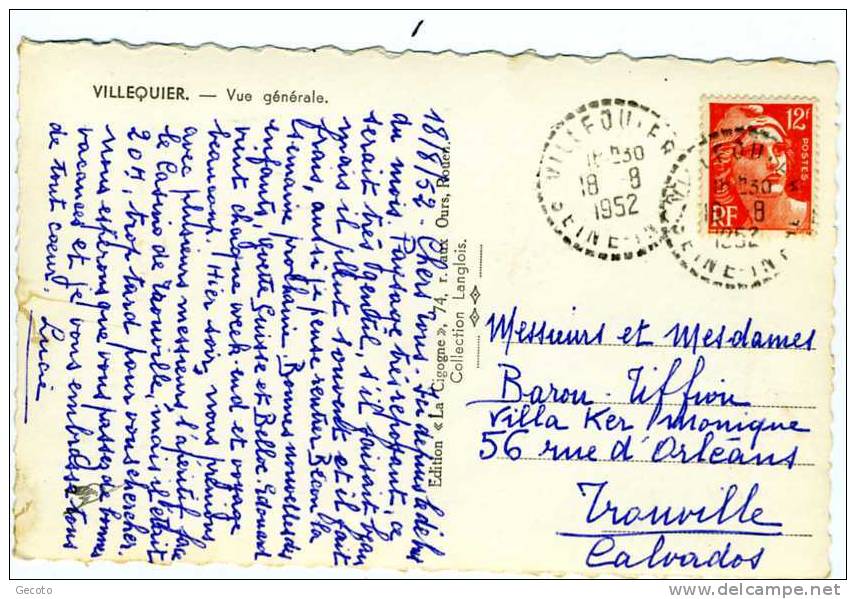 VILLEQUIER. — Vue générale.
18/8/52 - Chers vous - Ici depuis le début
du mois. Paysage très reposant, ce
serait très gentil, s'il faisait beau
mais il pleut souvent et il fait
frais, aussi je pense rentrer
semaine prochaine. Bonnes nouvelles des
enfants, Ginette Suisse et Belloc. Edouard
vient chaque week-end et voyage
beaucoup. Hier soir, nous prenions
avec plusieurs messieurs, l'apéritif face
le Casino de Trouville, mais il était
20 h, trop tard pour vous chercher.
Nous espérons que vous passez de bonnes
vacances et je vous embrasse tous
de tout cœur.
Lucie
Edition « La Cigogne », 74, r. aux Ours, Rouen.
Collection Langlois.
12F
POSTES
RF
VILLEQUIER
18 - 8
1952
SEINE-IN
18 - 8
1952
SEINE-INF
Messieurs et Mesdames
Baron - Tiffion
Villa Ker Monique
56 rue d'Orléans
Trouville
Calvados
Gecoto
www.delcampe.net